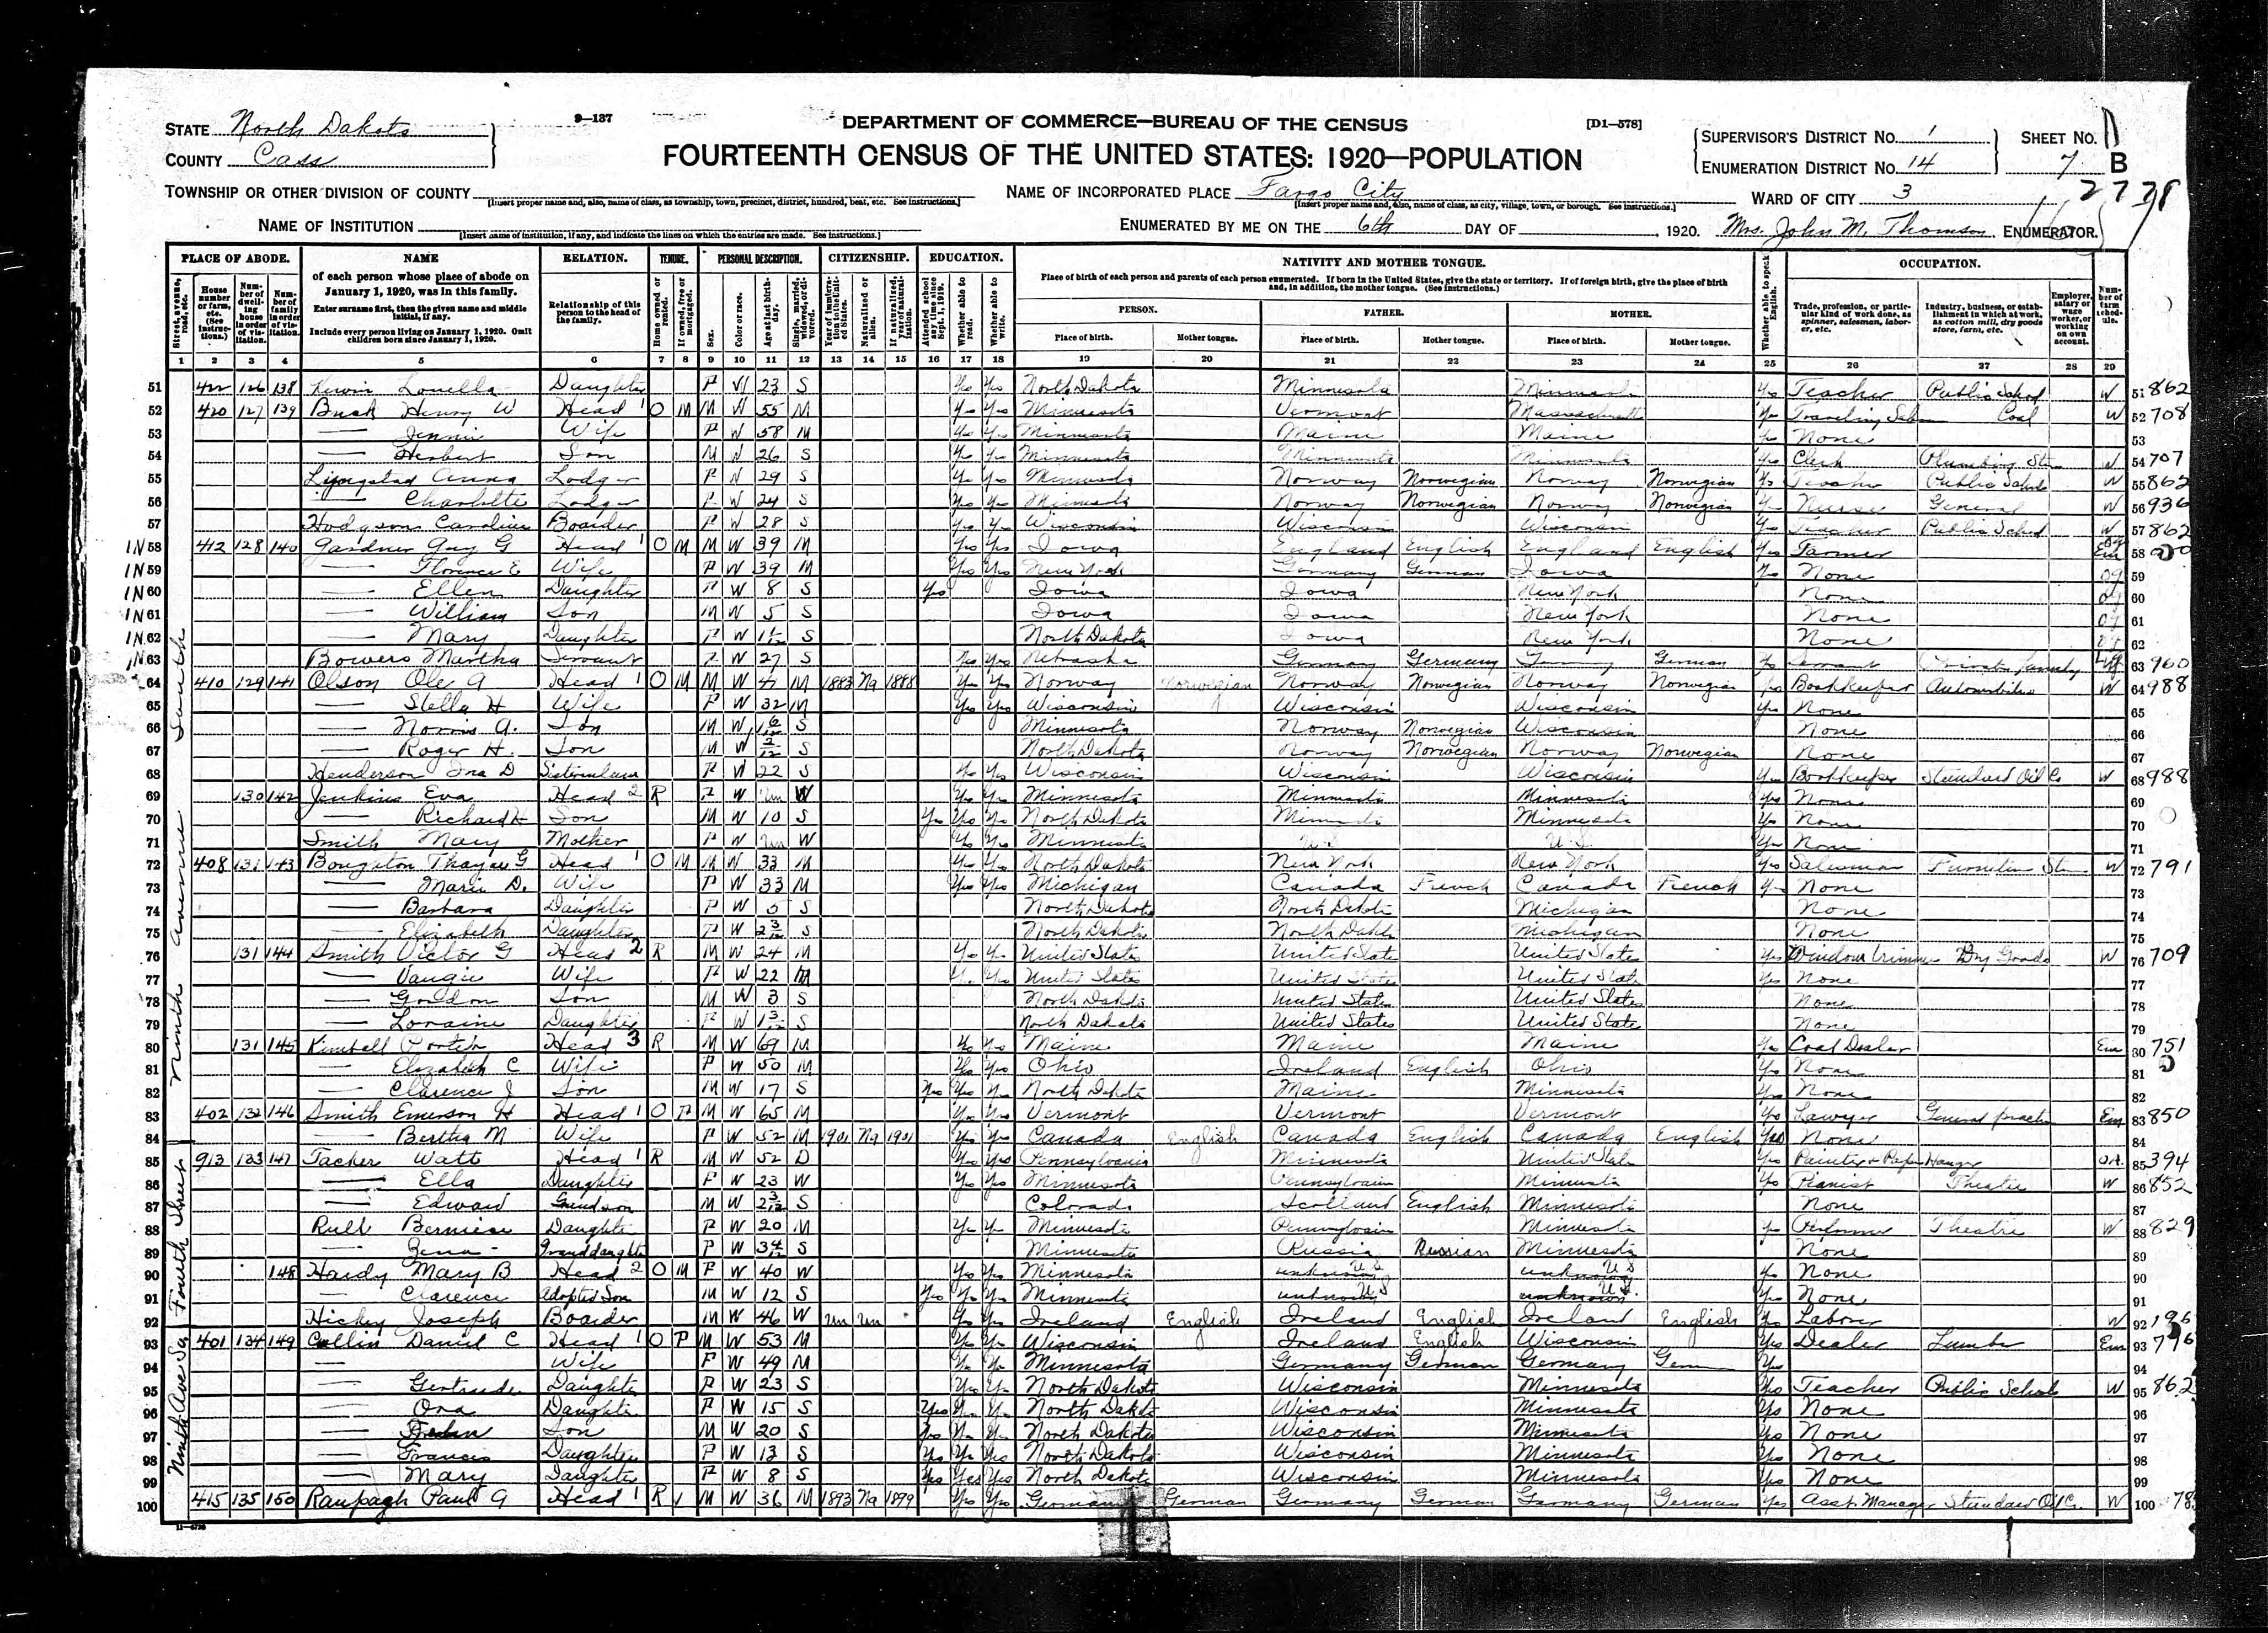 STATE North Dakota
COUNTY Cass
9—137
DEPARTMENT OF COMMERCE—BUREAU OF THE CENSUS
[D1—578]
FOURTEENTH CENSUS OF THE UNITED STATES: 1920—POPULATION
SUPERVISOR'S DISTRICT NO. 1
ENUMERATION DISTRICT NO. 14
SHEET NO.
7 B
TOWNSHIP OR OTHER DIVISION OF COUNTY
[Insert proper name and, also, name of class, as township, town, precinct, district, hundred, beat, etc. See instructions.]
NAME OF INCORPORATED PLACE Fargo City
[Insert proper name and, also, name of class, as city, village, town, or borough. See instructions.]
WARD OF CITY 3
NAME OF INSTITUTION
[Insert name of institution, if any, and indicate the lines on which the entries are made. See instructions.]
ENUMERATED BY ME ON THE 6th DAY OF , 1920. Mrs. John M. Thomson ENUMERATOR.
PLACE OF ABODE. NAME RELATION. TENURE. PERSONAL DESCRIPTION. CITIZENSHIP. EDUCATION. NATIVITY AND MOTHER TONGUE. OCCUPATION.
of each person whose place of abode on January 1, 1920, was in this family.
Enter surname first, then the given name and middle initial, if any.
Include every person living on January 1, 1920. Omit children born since January 1, 1920.
Relationship of this person to the head of the family.
Place of birth of each person and parents of each person enumerated. If born in the United States, give the state or territory. If of foreign birth, give the place of birth and, in addition, the mother tongue. (See instructions.)
PERSON. FATHER. MOTHER.
Place of birth. Mother tongue. Place of birth. Mother tongue. Place of birth. Mother tongue.
1 2 3 4 5 6 7 8 9 10 11 12 13 14 15 16 17 18 19 20 21 22 23 24 25 26 27 28 29
51 422 126 138 Louella Daughter F W 23 S Yes Yes North Dakota Minnesota Minnesota Yes Teacher Public School W 51 862
52 420 127 139 Buck Henry W Head 1 O M M W 55 M Yes Yes Minnesota Vermont Massachusetts Yes Coal W 52 708
53 — Jennie Wife F W 58 M Yes Yes Minnesota Maine Maine Yes None 53
54 — Herbert Son M W 26 S Yes Yes Minnesota Minnesota Minnesota Yes Clerk Plumbing W 54 707
55 Anna Lodger F W 29 S Yes Yes Minnesota Norway Norwegian Norway Norwegian Yes Teacher Public School W 55 862
56 — Charlotte Lodger F W 24 S Yes Yes Minnesota Norway Norwegian Norway Norwegian Yes Nurse General W 56 936
57 Hodgson Caroline Boarder F W 28 S Yes Yes Wisconsin Wisconsin Wisconsin Yes Teacher Public School W 57 862
1N 58 412 128 140 Gardner Guy G Head 1 O M M W 39 M Yes Yes Iowa England English England English Yes Farmer Em 58
1N 59 — Florence E Wife F W 39 M Yes Yes New York Germany German Iowa Yes None 59
1N 60 — Ellen Daughter F W 8 S Yes Iowa Iowa New York None 60
1N 61 — William Son M W 5 S Iowa Iowa New York None 61
1N 62 — Mary Daughter F W S North Dakota Iowa New York None 62
1N 63 Bowers Martha Servant F W 27 S Yes Yes Nebraska Germany Germany Germany German Yes Servant Private family 63 960
64 410 129 141 Olson Ole A Head 1 O M M W 41 M 1883 Na 1888 Yes Yes Norway Norwegian Norway Norwegian Norway Norwegian Yes Bookkeeper Automobiles W 64 988
65 — Stella H Wife F W 32 M Yes Yes Wisconsin Wisconsin Wisconsin Yes None 65
66 — Norris A. Son M W 1 6/12 S Minnesota Norway Norwegian Wisconsin None 66
67 — Roger H. Son M W 2/12 S North Dakota Norway Norwegian Norway Norwegian None 67
68 Henderson Ina D Sisterinlaw F W 22 S Yes Yes Wisconsin Wisconsin Wisconsin Yes Bookkeeper Standard Oil Co W 68 988
69 130 142 Jenkins Eva Head 2 R F W Un W Yes Yes Minnesota Minnesota Minnesota Yes None 69
70 — Richard H Son M W 10 S Yes Yes Yes North Dakota Minnesota Minnesota Yes None 70
71 Smith Mary Mother F W Un W Yes Yes Minnesota U.S. U.S. Yes None 71
72 408 131 143 Boughton Head 1 O M M W 33 M Yes Yes North Dakota New York New York Yes Salesman Furniture W 72 791
73 — Marie D. Wife F W 33 M Yes Yes Michigan Canada French Canada French Yes None 73
74 — Barbara Daughter F W 5 S North Dakota North Dakota Michigan None 74
75 — Elizabeth Daughter F W 2 3/12 S North Dakota North Dakota Michigan None 75
76 131 144 Smith Victor G Head 2 R M W 24 M Yes Yes United States United States United States Yes Window trimmer Dry Goods W 76 709
77 — Vangie Wife F W 22 M Yes Yes United States United States United States Yes None 77
78 — Gordon Son M W 3 S North Dakota United States United States None 78
79 — Lorraine Daughter F W 1 3/12 S North Dakota United States United States None 79
80 131 145 Kimball Porter Head 3 R M W 69 M Yes Yes Maine Maine Maine Yes Coal Dealer Em 80 751
81 — Elizabeth C Wife F W 50 M Yes Yes Ohio Ireland English Ohio Yes None 81
82 — Clarence J Son M W 17 S Yes North Dakota Maine Minnesota Yes None 82
83 402 132 146 Smith Emerson H Head 1 O F M W 65 M Yes Yes Vermont Vermont Vermont Yes Lawyer General practice Em 83 850
84 — Bertha M Wife F W 52 M 1901 Na 1901 Yes Yes Canada English Canada English Canada English Yes None 84
85 913 133 147 Tacher Watt Head 1 R M W 52 D Yes Yes Pennsylvania Minnesota United States Yes Painter & Paper Hanger O.A. 85 394
86 — Ella Daughter F W 23 W Yes Yes Minnesota Pennsylvania Minnesota Yes Pianist Theatre W 86 852
87 — Edward Grandson M W 2 3/12 S Colorado Scotland English Minnesota None 87
88 Rull Daughter F W 20 M Yes Yes Minnesota Pennsylvania Minnesota Yes Performer Theatre W 88 829
89 — Zena Granddaughter F W 3 4/12 S Minnesota Russia Russian Minnesota None 89
90 148 Hardy Mary B Head 2 O M F W 40 W Yes Yes Minnesota unknown U S unknown U S Yes None 90
91 — Clarence Adopted Son M W 12 S Yes Yes Yes Minnesota unknown U S unknown U S. Yes None 91
92 Hickey Joseph Boarder M W 46 W Un Un Yes Yes Ireland English Ireland English Ireland English Yes Laborer W 92
93 401 134 149 Collin Daniel C Head 1 O F M W 53 M Yes Yes Wisconsin Ireland English Wisconsin Yes Dealer Lumber Em 93
94 — Wife F W 49 M Yes Yes Minnesota Germany German Germany Germ Yes 94
95 — Gertrude Daughter F W 23 S Yes Yes North Dakota Wisconsin Minnesota Yes Teacher Public School W 95 862
96 — Ora Daughter F W 15 S Yes Yes Yes North Dakota Wisconsin Minnesota Yes None 96
97 — Son M W 20 S North Dakota Wisconsin Minnesota Yes None 97
98 — Francis Daughter F W 13 S Yes Yes Yes North Dakota Wisconsin Minnesota Yes None 98
99 — Mary Daughter F W 8 S Yes Yes Yes North Dakota Wisconsin Minnesota Yes None 99
100 415 135 150 Raupagh Paul G Head 1 R M W 36 M 1893 Na 1899 Yes Yes Germany German Germany German Germany German Yes Asst. Manager Standard Oil Co. W 100 78
Ninth Avenue South
Fourth Street
Ninth Ave So